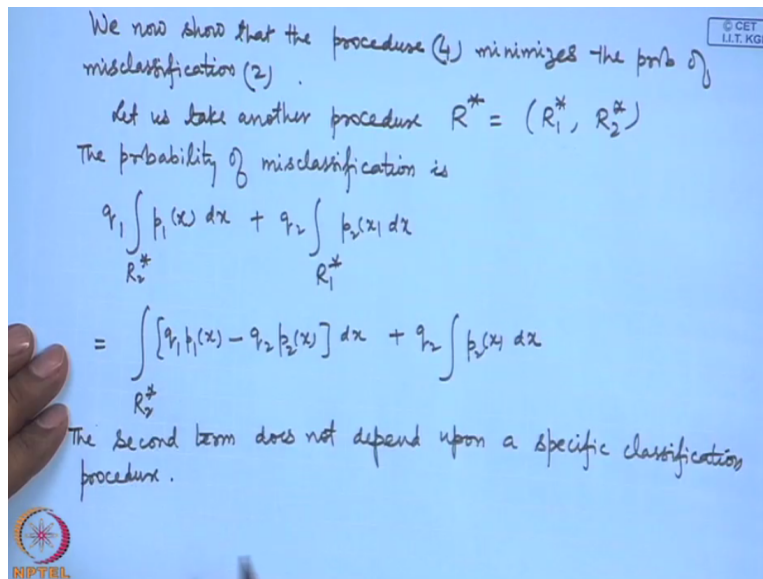 We now show that the procedure (4) minimizes the prob of
© CET
I.I.T. KGP
misclassification (2).
Let us take another procedure R* = (R₁*, R₂*)
The probability of misclassification is
q₁ ∫_{R₂*} p₁(x) dx + q₂ ∫_{R₁*} p₂(x) dx
= ∫_{R₂*} [q₁p₁(x) − q₂p₂(x)] dx + q₂ ∫ p₂(x) dx
The second term does not depend upon a specific classification
procedure.
NPTEL